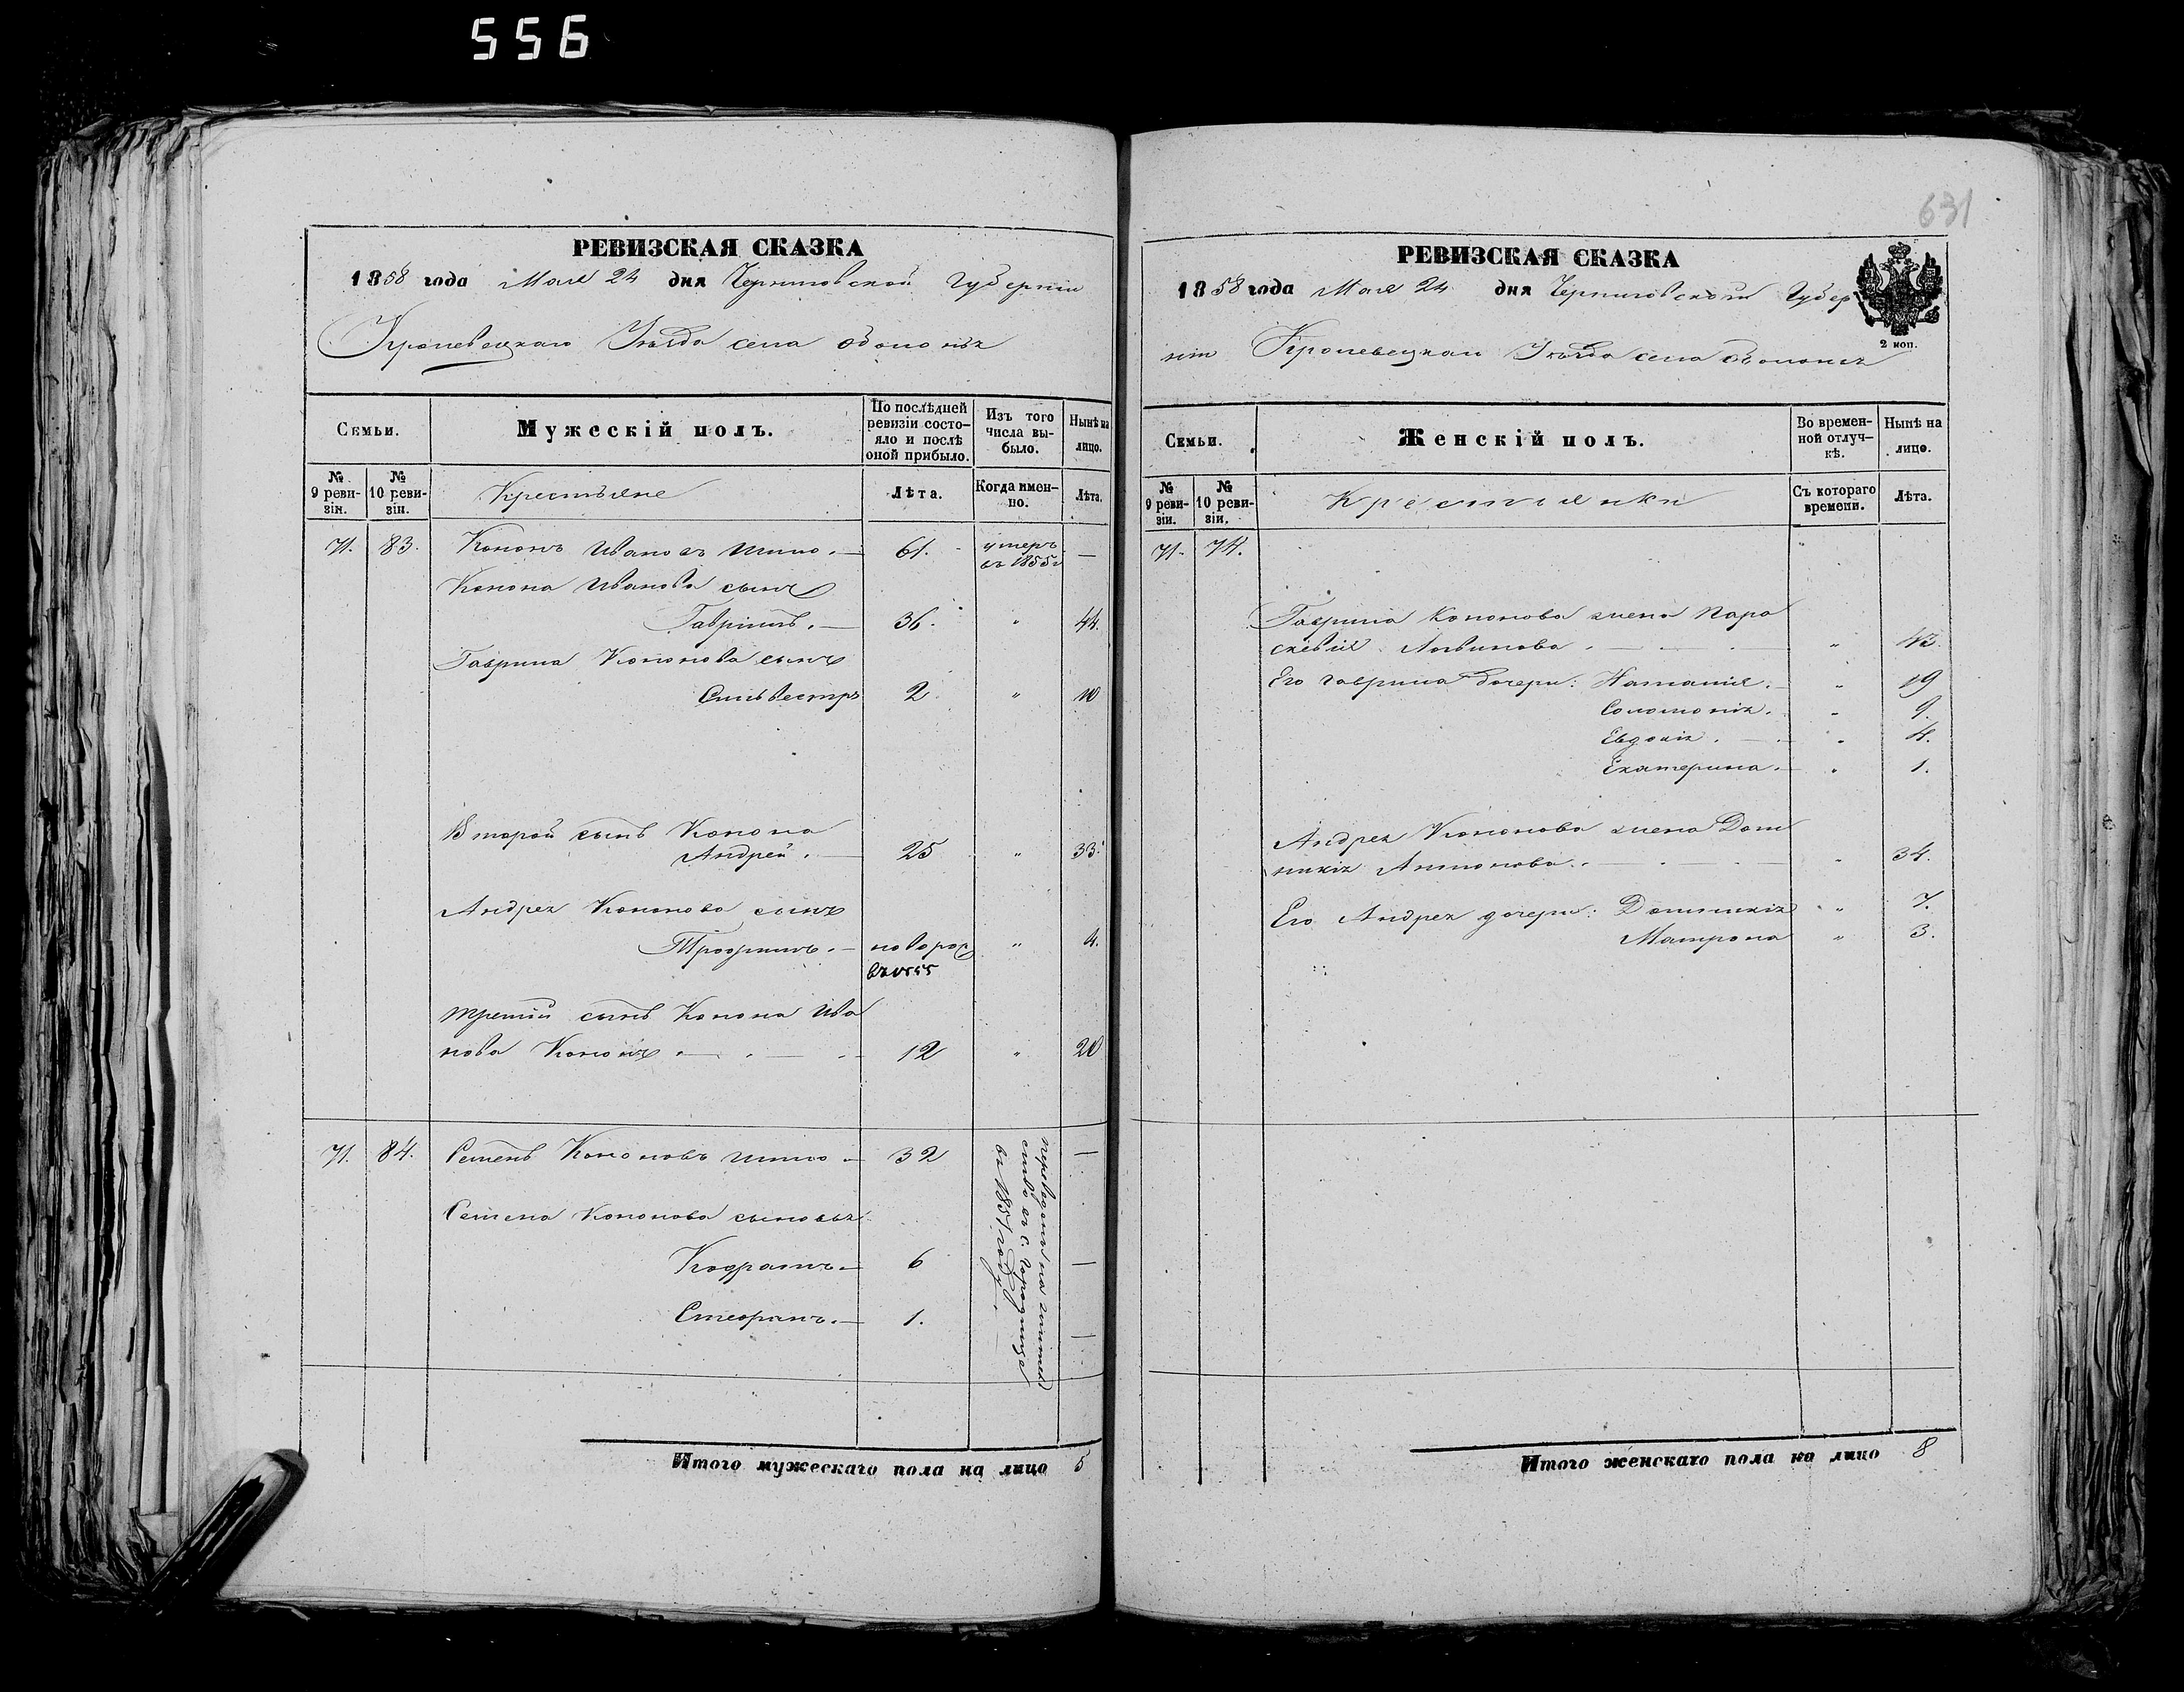 556
РЕВИЗСКАЯ СКАЗКА
1858 года Мая 24 дня Черниговской Губерніи
Кролевецкаго Уѣзда села Оболонья
Семьи.
Мужескій полъ.
По послѣдней ревизіи состояло и послѣ оной прибыло.
Изъ того числа выбыло.
Нынѣ на лицо.
№ 9 ревизіи.
№ 10 ревизіи.
Крестьяне
Лѣта.
Когда именно.
Лѣта.
71. 83. Кононъ Ивановъ 61. умеръ въ 1855 г —
Конона Иванова сынъ
Гаврiилъ. — 36. " 44.
Гаврила Кононова сынъ
Сильвестръ 2 " 10
Второй сынъ Конона
Андрей. — 25 " 33.
Андрея Кононова сынъ
Трофимъ. — новорож " 4.
въ
третій сынъ Конона Ива
нова Кононъ 12 " 20
71. 84. Семенъ Кононовъ 32 —
Семена Кононова сыновья
Кодратъ. — 6 —
Стефанъ. — 1. —
переведены на житель
ство въ с. Городище
въ 1851 году.
Итого мужескаго пола на лицо 5
631
РЕВИЗСКАЯ СКАЗКА
1858 года Мая 24 дня Черниговской Губер
2 коп.
ніи Кролевецкаго Уѣзда села Оболонья
Семьи.
Женскій полъ.
Во временной отлучкѣ.
Нынѣ на лицо.
№ 9 ревизіи.
№ 10 ревизіи.
Крестьянки
Съ котораго времени.
Лѣта.
71. 74. "
Гаврила Кононова жена Пара
скевія Логвинова " 43.
Его Гаврила дочери: Наталія. " 19
Соломонія. " 9.
Евдокія. " 4.
Екатерина. " 1.
Андрея Кононова жена Дом
никія Антонова. " 34.
Его Андрея дочери: Домникія " 7.
Матрона " 3.
Итого женскаго пола на лицо 8